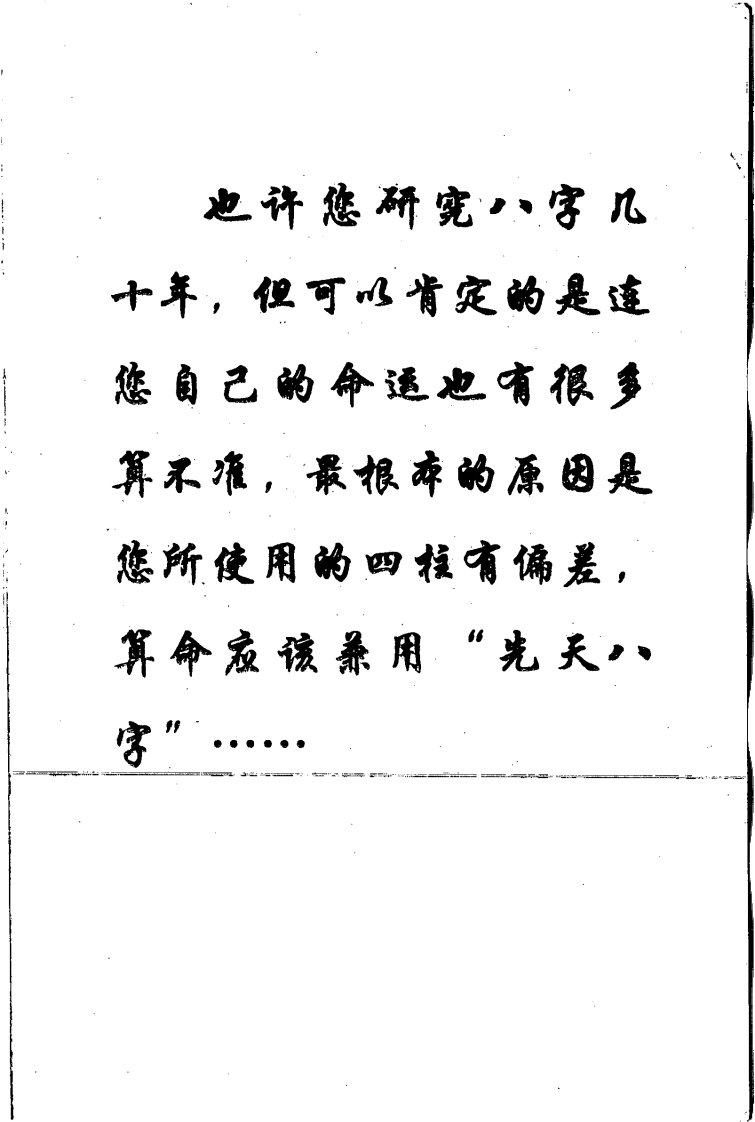 也许您研究八字几
十年，但可以肯定的是连
您自己的命运也有很多
算不准，最根本的原因是
您所使用的四柱有偏差，
算命应该兼用“先天八
字”······